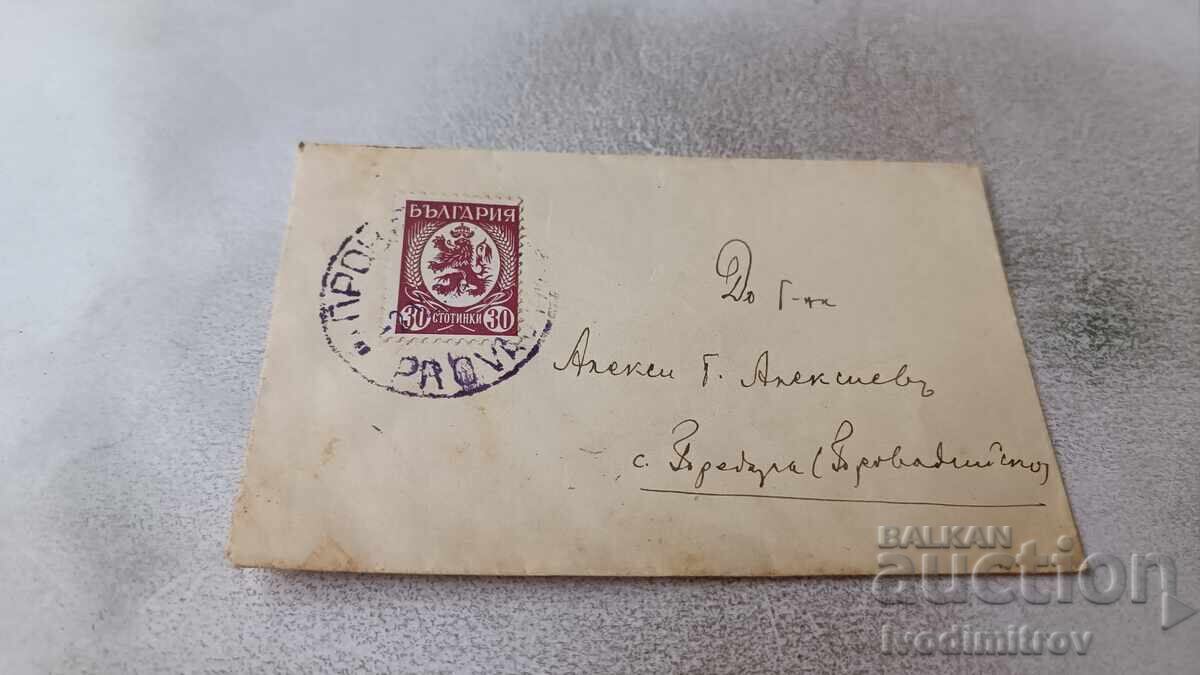 БЪЛГАРИЯ
30 СТОТИНКИ 30
PROVA
До Г-нн
Алекси Г. Алексиевъ
с. (Провадийско)
BALKAN
auction
Ivodimitrov